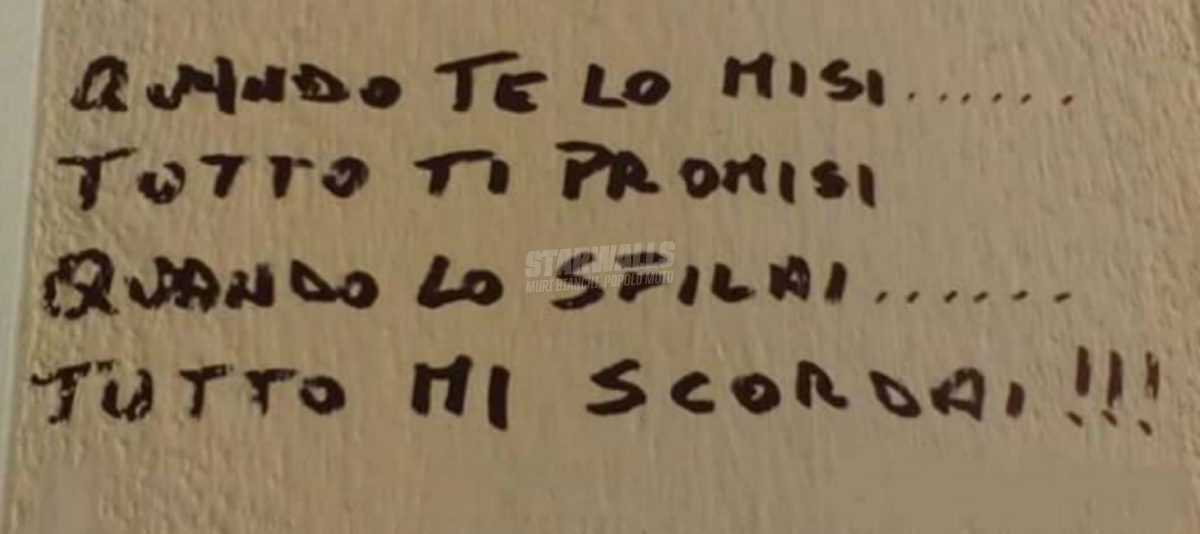 QUANDO TE LO MISI......
TUTTO TI PROMISI
STARWALLS
MURI BIANCHI, POPOLO MUTO
QUANDO LO SFILAI.......
TUTTO MI SCORDAI!!!